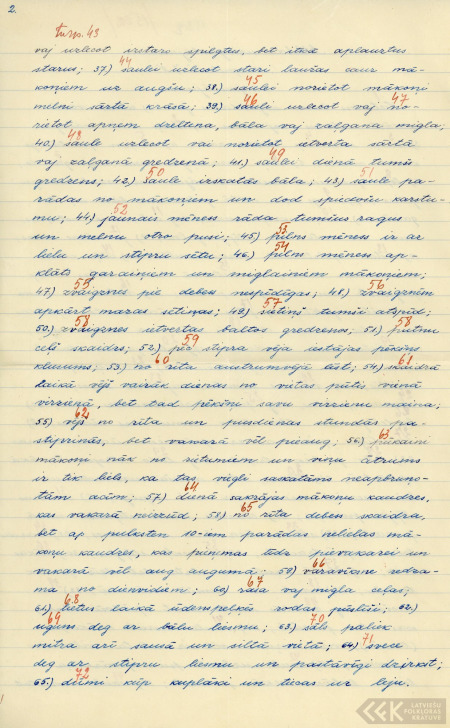 2.
turp. 43
vaj uzlecot izstaro spilgtus, bet itkā aplauztus
44
starus; 37.) saulei uzlecot stari laužas caur mā-
45
koņiem uz augšu; 38.) saulei norietot mākoņi
46 47
melni sārtā krāsā; 39.) sauli uzlecot vaj no-
rietot apņem dzeltena, bāla vaj zaļgana migla;
48
40.) saule uzlecot vai norietot ietverta sārtā
49
vaj zaļganā gredzenā; 41.) saulei dienā tumšs
50 51
gredzens; 42.) saule izskatās bāla; 43.) saule pa-
rādas no mākoņiem un dod spiedošu karstu-
52
mu; 44.) jaunais mēness rāda tumšus ragus
53
un melnu otro pusi; 45.) pilns mēness ir ar
54
lielu un stipru sētu; 46.) pilns mēness ap-
klāts garainiem un miglainiem mākoņiem;
55 56
47.) zvaigznes pie debess nespīdīgas; 48.) zvaigznēm
57
apkārt mazas sētiņas; 49.) sietiņš tumši atspīd;
58 58
50.) zvaigznes ietvertas baltos gredzenos; 51.) putnu
59
ceļš skaidrs; 52.) pēc stipra vēja iestājas pēkšņs
60 61
klusums; 53.) no rīta austrumvējā līst; 54.) skaidrā
laikā vējš vairāk dienas no vietas pūtis vienā
virzienā, bet tad pēkšņi savu virzienu maina;
62
55.) vējš no rīta un pusdienas stundās pa-
63
stiprinās, bet vakarā vēl pieaug; 56.) pūkaini
mākoņi nāk no rietumiem un viņu ātrums
ir tik liels, ka tas viegli saskatāms neapbruņo-
64
tām acīm; 57.) dienā sakrājas mākoņu kaudzes,
65
kas vakarā neizzūd; 58.) no rīta debess skaidra,
bet ap pulksten 10-iem parādas nelielas mā-
koņu kaudzes, kas pieņemas līdz pievakarei un
66
vakarā vēl aug augumā; 59.) varavīksne redza-
67
ma no dienvidiem; 60.) rasa vaj migla ceļas;
68
61.) lietus laikā ūdenspeļķēs rodas pūslīši; 62.)
69 70
uguns deg ar bālu liesmu; 63.) sāls paliek
71
mitra arī sausā un siltā vietā; 64.) svece
deg ar stipru liesmu un pastāvīgi dzirkst;
72
65.) dūmi kūp kuplāki un tūcas uz leju.
LATVIEŠU
FOLKLORAS
KRĀTUVE